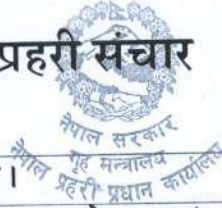 प्रहरी संचार
नेपाल सरकार
गृह मन्त्रालय
नेपाल प्रहरी प्रधान कार्यालय
।